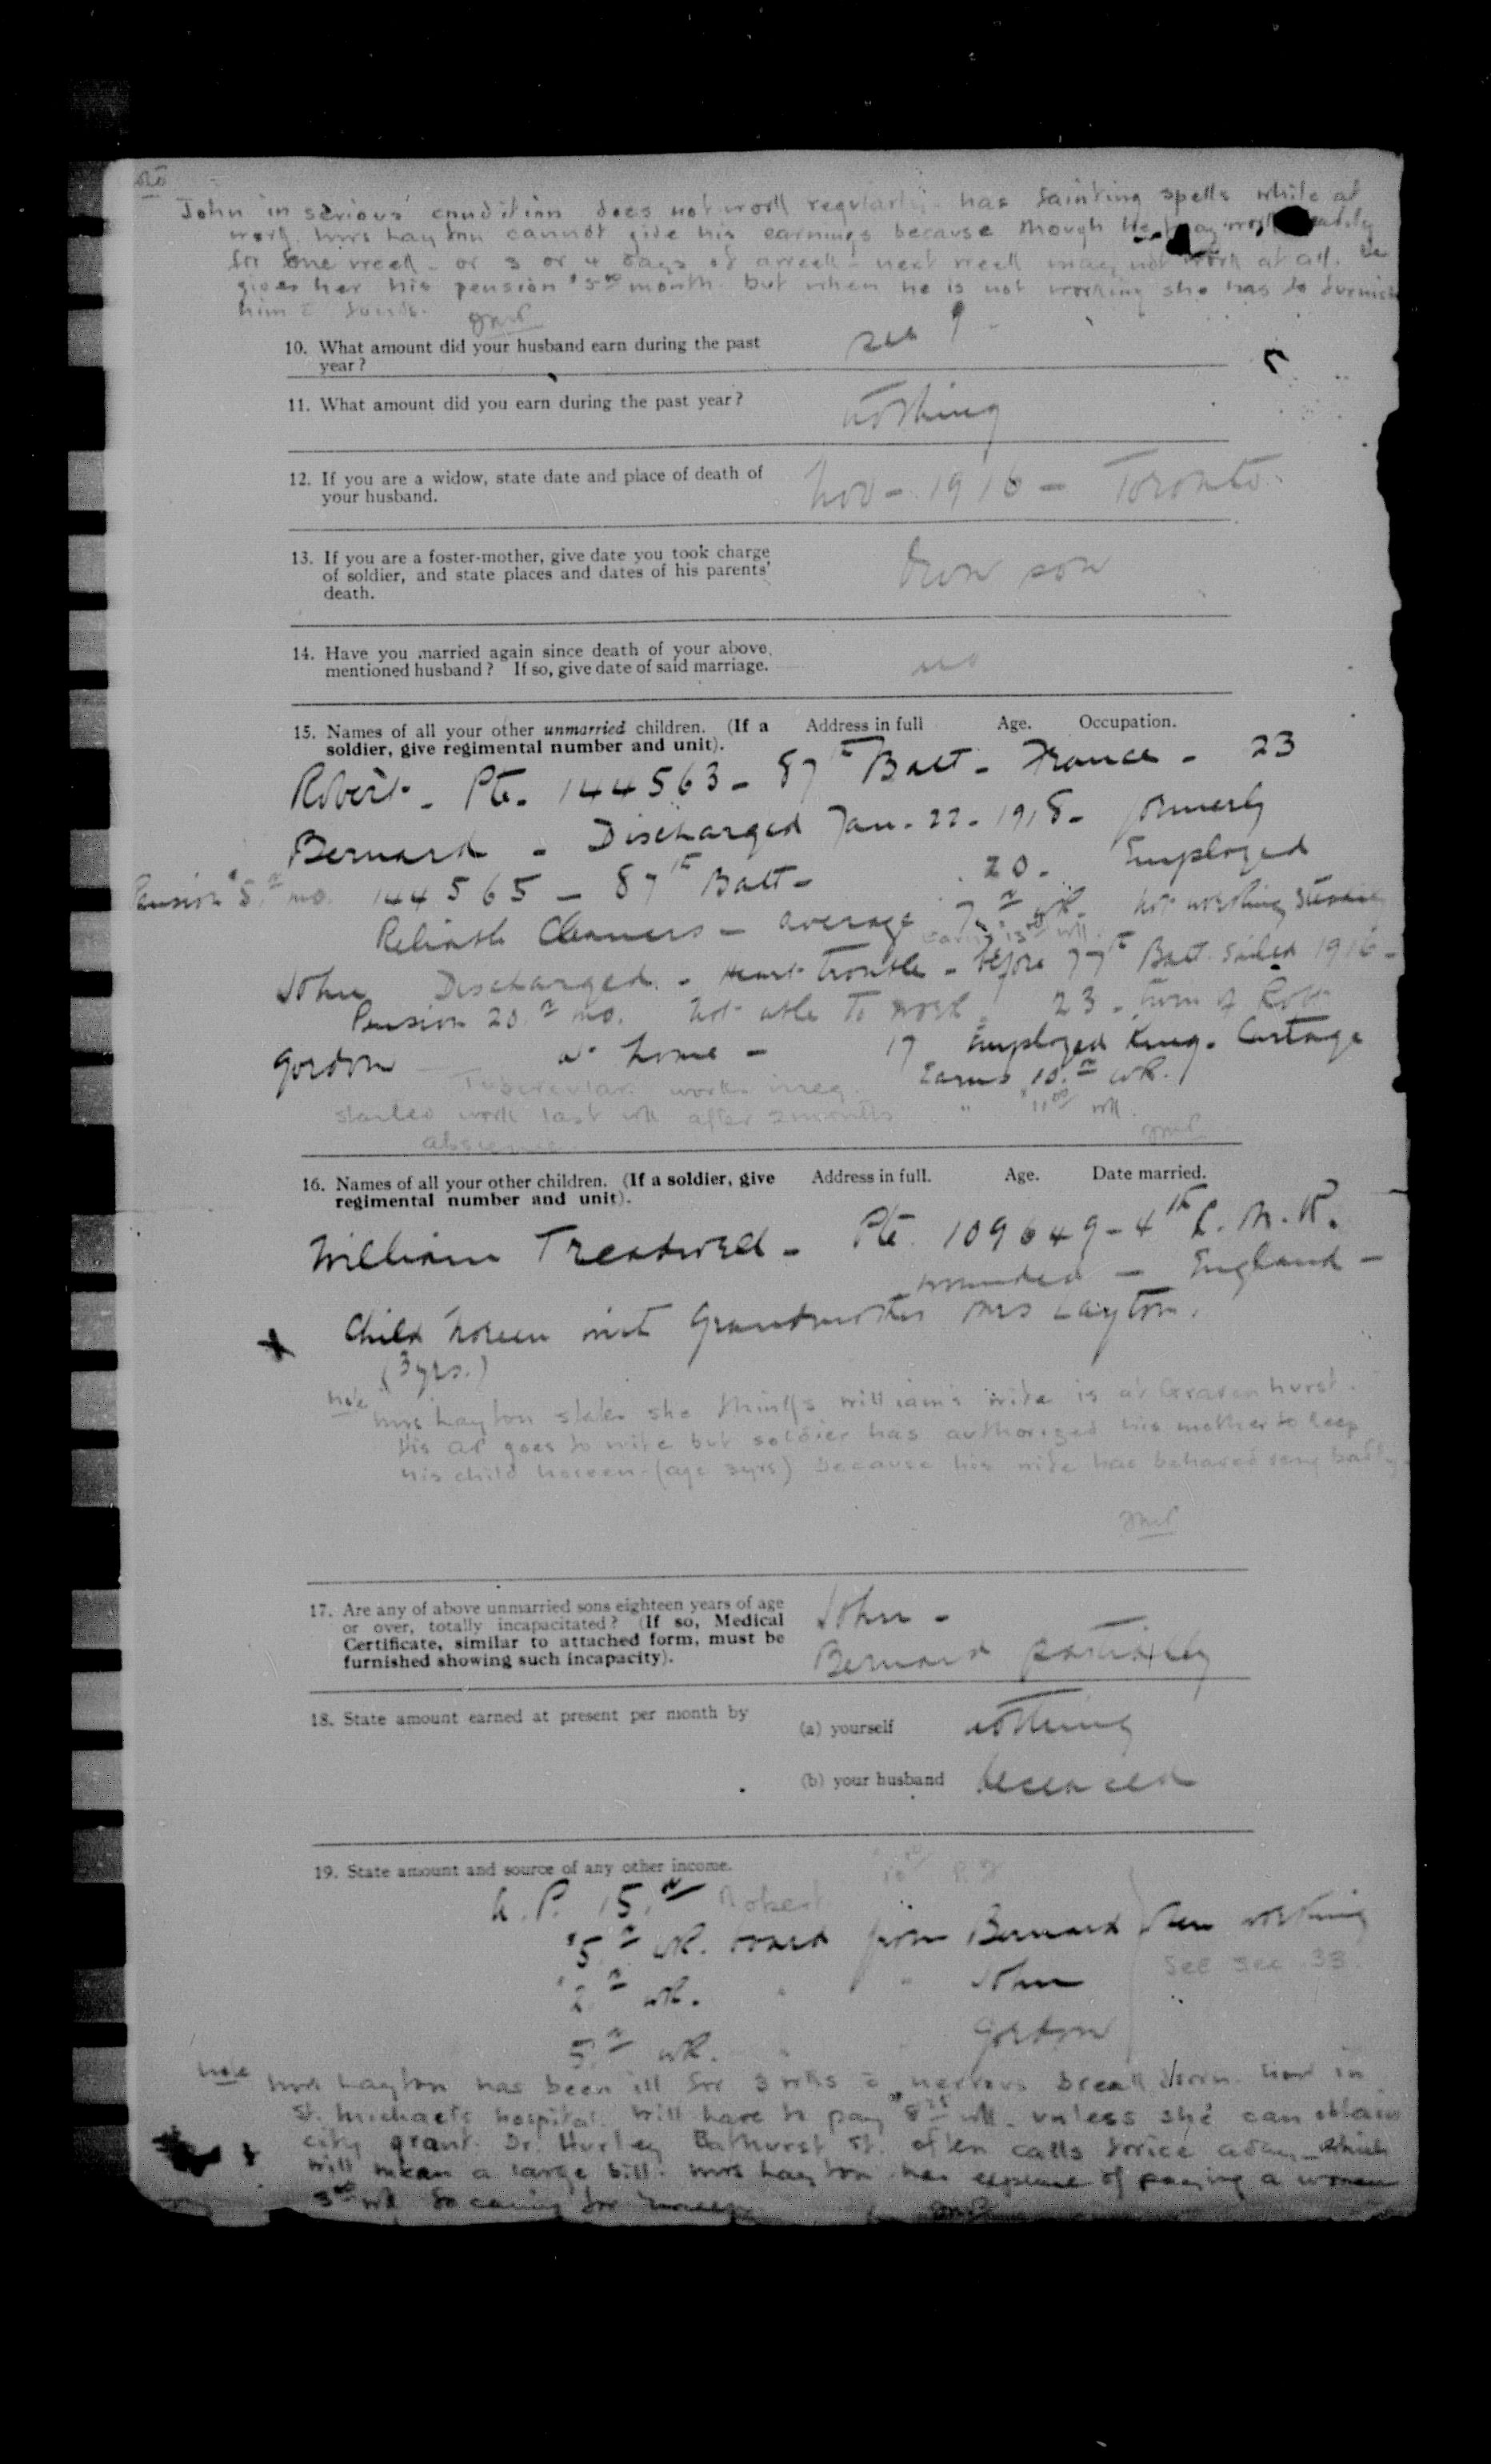 John in serious condition does not work regularly. has fainting spells while at
work. Mrs Layton cannot give his earnings because though he may work steadily
for one week - or 3 or 4 days of a week - next week may not work at all. he
gives her his pension $5.00 month. but when he is not working she has to furnish
him
10. What amount did your husband earn during the past
year? see 9
11. What amount did you earn during the past year? nothing
12. If you are a widow, state date and place of death of
your husband. Nov - 1916 - Toronto.
13. If you are a foster-mother, give date you took charge
of soldier, and state places and dates of his parents'
death. Own son
14. Have you married again since death of your above
mentioned husband? If so, give date of said marriage. no
15. Names of all your other unmarried children. (If a Address in full Age. Occupation.
soldier, give regimental number and unit).
Robert - Pte. 144563 - 87th Batt - France - 23
Bernard - Discharged Jan - 22 - 1918 - formerly
Pension $5.00 mo. 144565 - 87th Batt - 20 - Employed
Reliable Cleaners - average 7.00 wk. not working steadily
John Discharged - Heart trouble - before 77th Batt. sailed 1916 -
Pension 20.00 mo. Not able to work 23 - twin of Robt
Gordon at home - 17 Employed King. Cartage
Earns 10.00 wk.
Tubercular works irreg.
started work last wk after 2 months " $11.00 wk.
absence.
16. Names of all your other children. (If a soldier, give Address in full. Age. Date married.
regimental number and unit).
William Treadwell - Pte. 109649 - 4th C. M. R.
wounded - England -
x Child Noreen with Grandmother Mrs Layton.
(3 yrs.)
note Mrs Layton states she thinks William's wife is at Gravenhurst.
His AP goes to wife but soldier has authorized his mother to keep
his child Noreen - (age 3 yrs) because his wife has behaved very badly.
17. Are any of above unmarried sons eighteen years of age
or over, totally incapacitated? (If so, Medical
Certificate, similar to attached form, must be
furnished showing such incapacity).
John -
Bernard partially
18. State amount earned at present per month by
(a) yourself nothing
(b) your husband deceased
19. State amount and source of any other income. 10.00 P.F.
A. P. 15.00 Robert
$5.00 wk. board from Bernard when working
$2.00 wk. " " John see sec 33.
5.00 wk. " " Gordon
note Mrs Layton has been ill for 3 wks c nervous break down. now in
St. Michael's hospital. Will have to pay wk. unless she can obtain
city grant. Dr. Hurley Bathurst St. often calls twice a day - which
will mean a large bill. Mrs Layton has expense of paying a woman
3.00 wk for caring for Noreen